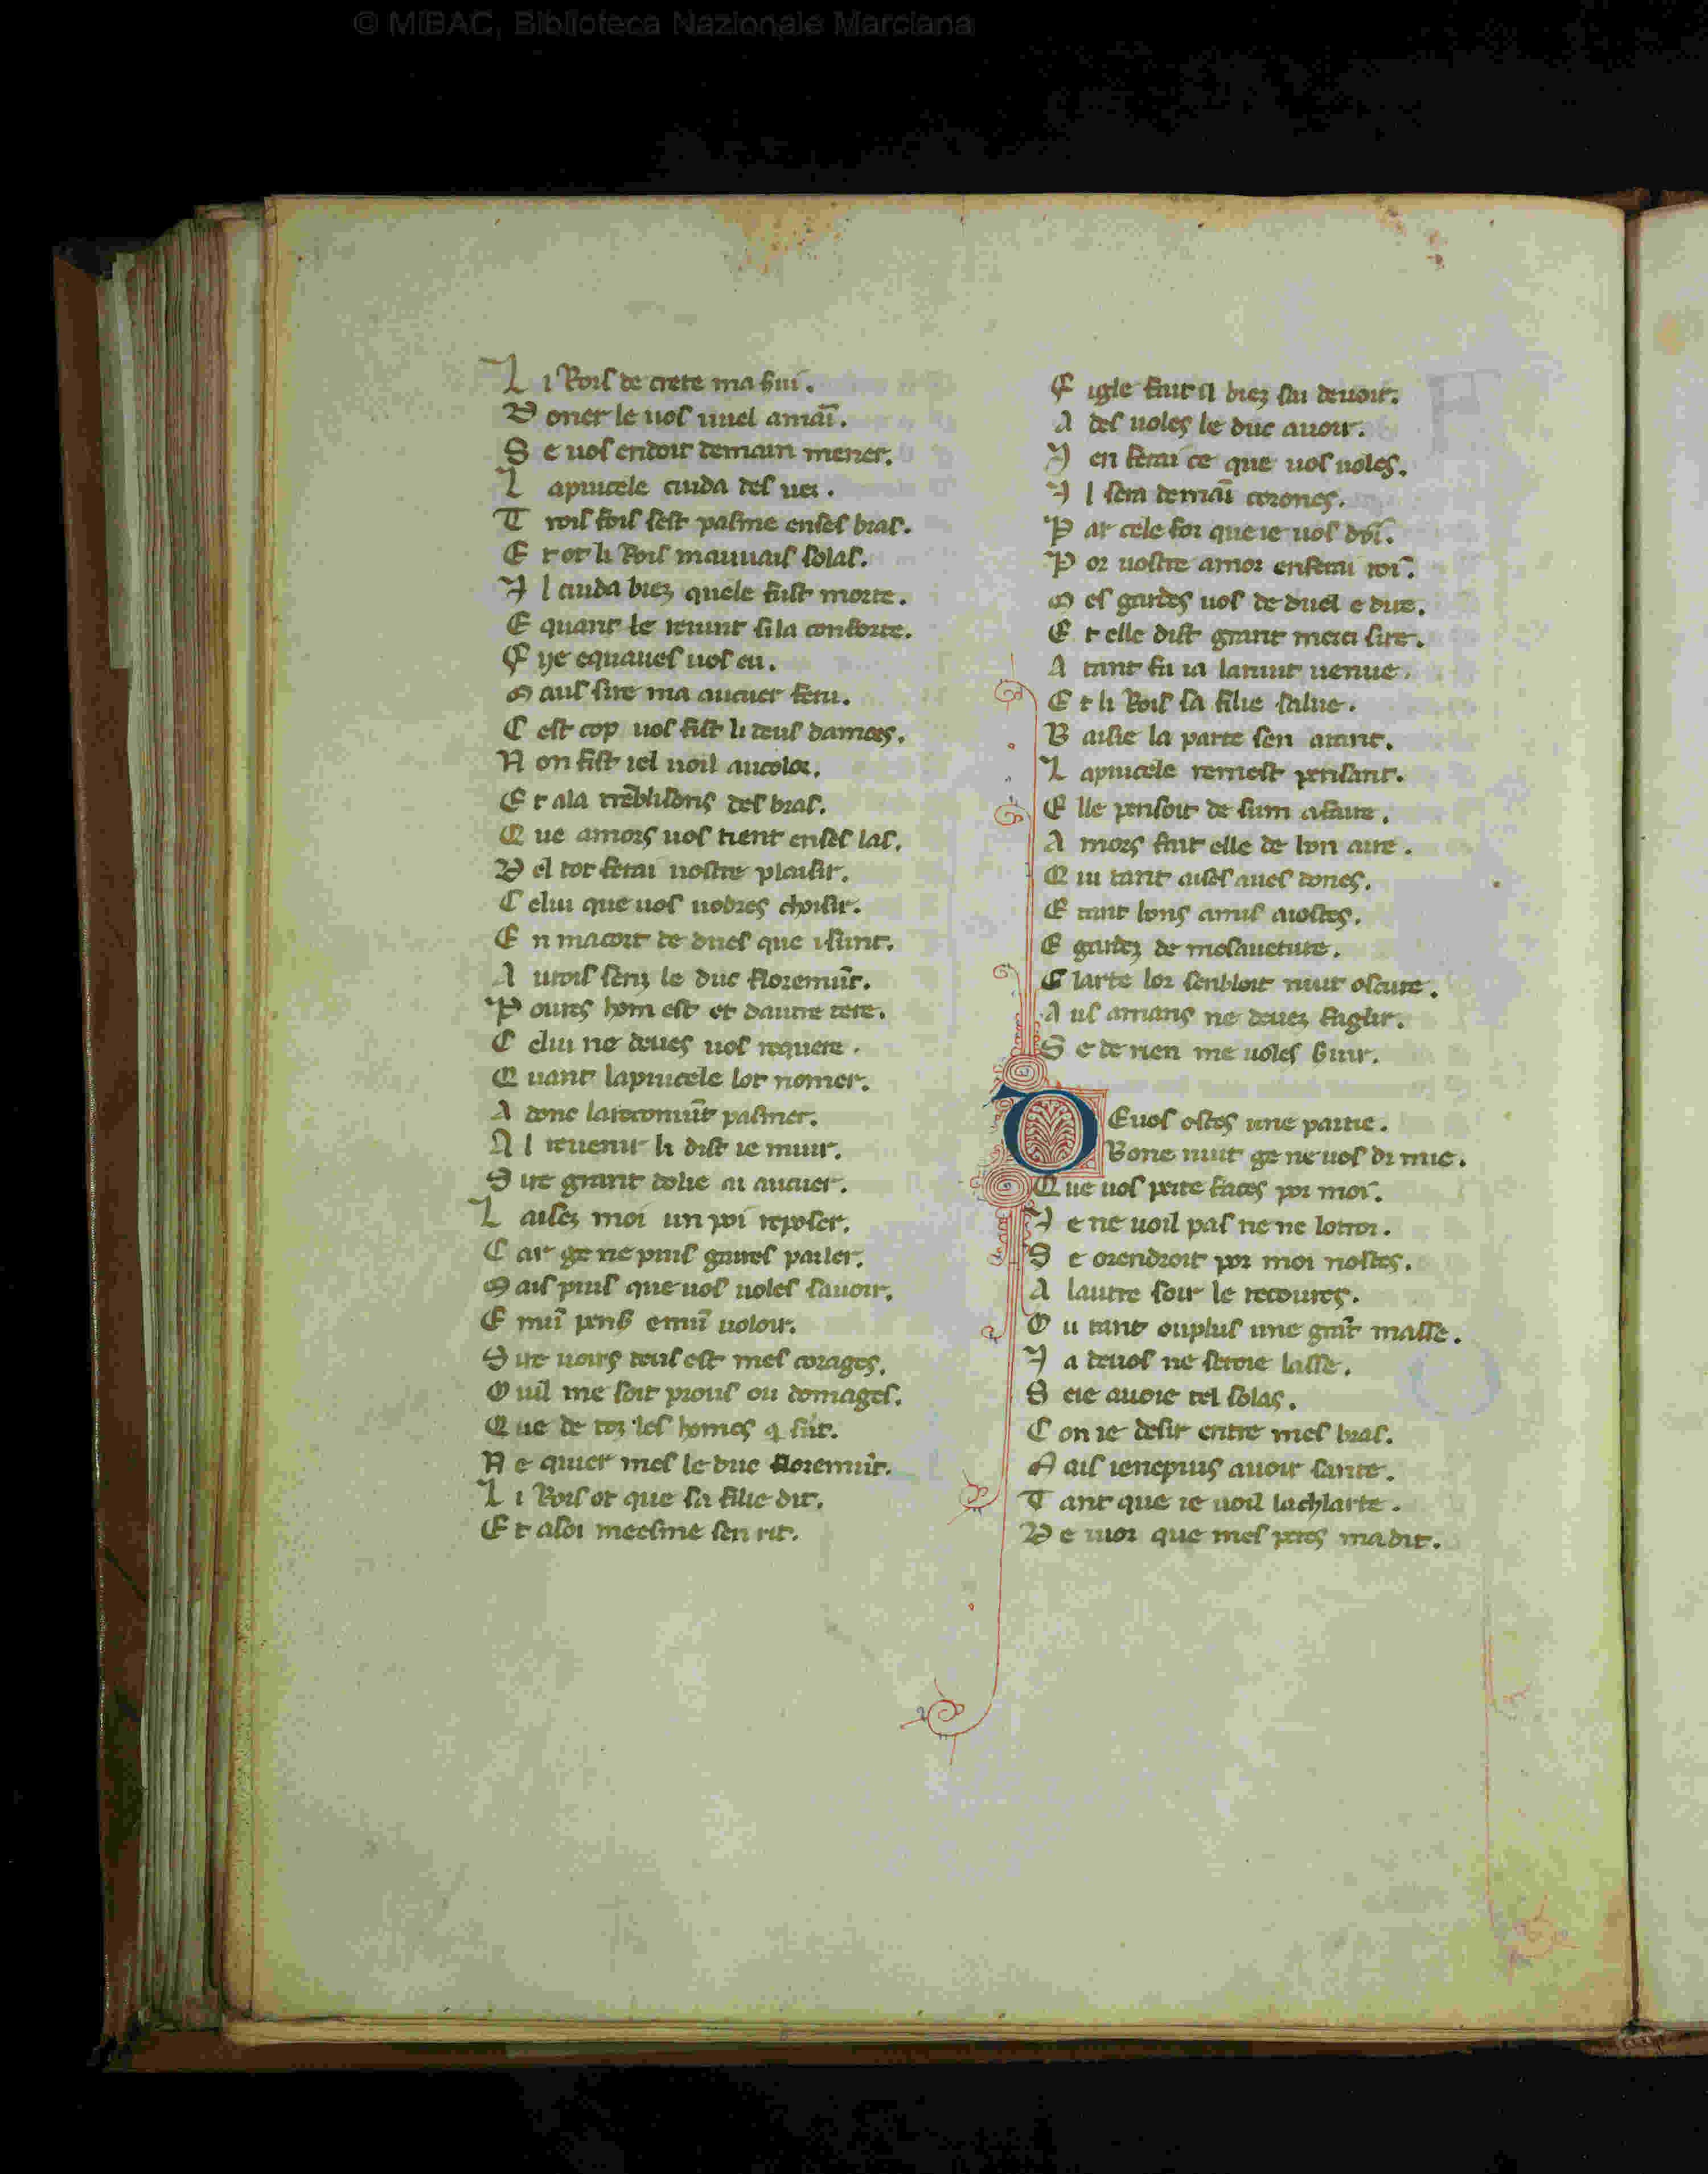 © MiBAC, Biblioteca Nazionale Marciana
L i Rois de crete ma hui.
D oner le uos uuel amaī.
S e uos endoit demain mener.
L apucele cuida des uei.
T rois fois sest pasme enses bras.
E t ot li Rois mauuais solas.
I l cuida biez quele fust morte.
E quant le reuint sila conforte.
F ije equaues uos eu.
M aus sire ma aucuer feru.
C est cop uos fist li deus damors.
N on fist iel uoil
E t ala trēblisons des bras.
Q ue amors uos tient enses las.
D el tot ferai uostre plaisir.
C elui que uos uodres choisir.
E n macort de dues que isunt.
A urois senz le duc floremūt.
P oures hom est et dautre tere.
C elui ne deues uos requere.
Q uant lapucele lot nomer.
A donc pasmer.
A l reuenir li dist ie muir.
S ire grant dolie ai aucuer.
L aises moi un poi reposer.
C ar ge ne puis gaires parler.
M ais puis que uos uoles sauoir.
E mū penś emū uoloir.
S ire uoirs teus est mes corages.
O uil me soit prous ou domages.
Q ue de toz les homes q sūt.
N e quier mes le duc floremūt.
L i Rois ot que sa filie dit.
E t asoi meesme sen rit.
F igle fait il biez sai deuoir.
A des uoles le duc auoir.
I en ferai ce que uos uoles.
I l sera demaī corones.
P ar cele foi que ie uos doī.
P or uostre amor enferai roi.
M es gardes uos de duel e dire.
E t elle dist grant merci sire.
A tant fu ia lanuit uenue.
E t li Rois sa filie salue.
B aisie la parte sen atant.
L apucele remest pensant.
E lle pensoit de sum afaire.
A mors fait elle de bon aire.
Q ui tant aises aues dones.
E tant bons amis aiostes.
E gardez de mesauenture.
C larte lor senbloit nuit oscure.
A us amans ne deuez faglir.
S e de rien me uoles seruir.
D Euos ostes une partie.
Bone nuit ge ne uos di mie.
Que uos perte faces por moi.
I e ne uoil pas ne ne lotroi.
S e orendroit por moi nostes.
A lautre soir le recoures.
O u tant ouplus une grāt masse.
I a deuos ne seroie lasse.
S eie auoie tel solas.
C on ie desir entre mes bras.
M ais ienepuis auoir sante.
T ant que ie uoil lachlarte.
D e iuor que mes peres madit.